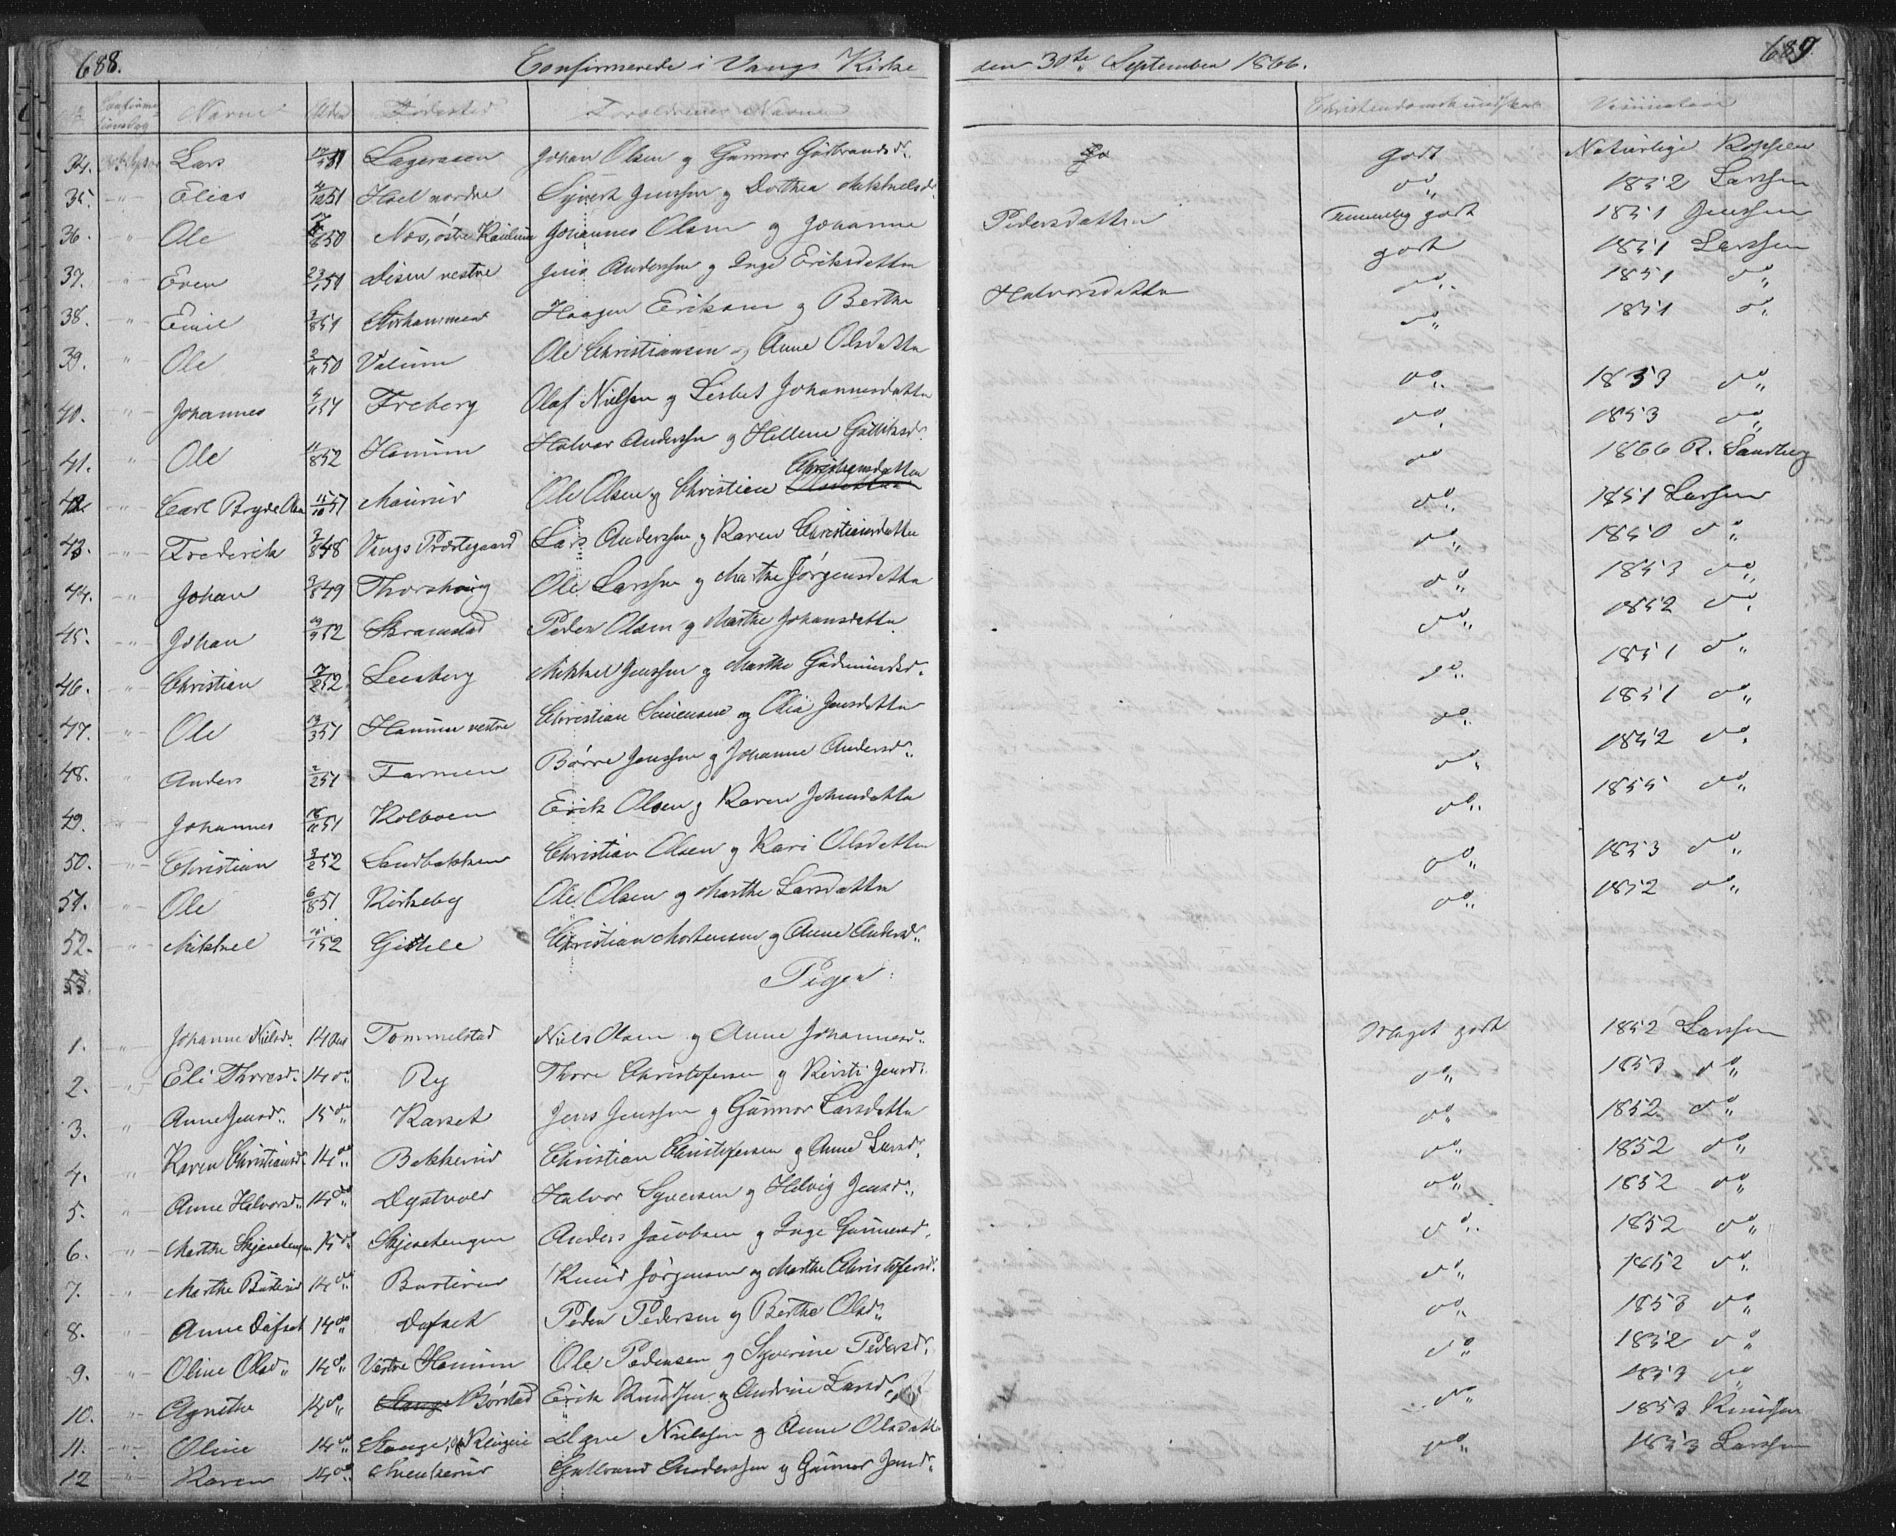 688. Confirmerede i Vangs Kirke den 30te September 1866. 689
No Confirmationsdag Navne Alder Fødested Forældrenes Navne Christendomskundskab Vaccination
34. Lars Lageraaen Johan Olsen og Gunnor Gudbrandsdr. godt Naturlige Kopper
35. Elias 51 Hoel nordre Syvert Jenssen og Dorthea Mikkelsdr. do 1852 Larssen
36. Ole 50 Næs, østre Johannes Olsen og Johanne Pedersdatter Temmelig godt 1851 Jenssen
37. Even 23/1 51 Disen vestre Jens Anderssen og Inge Eriksdatter godt 1851 Larssen
38. Emil 3/8 51 Storhammer Haagen Eriksen og Berthe Halvorsdatter do 1851 do
39. Ole 2/11 50 Valum Ole Christiansen og Anne Olsdatter do 1851 do.
40. Johannes 51 Freberg Olaf Nielsen og Lisbet Johannesdatter do 1853 do
41. Ole 11/8 52 Hamum Halvor Anderssen og Hellene Gulliksdr. do 1853 do
42. Carl Bryde Olsen 11/10 51 Maurud Ole Olsen og Christiane Christensdatter do 1866 R. Sandberg
43. Frederik 2/8 48 Vangs Præstegaard Lars Anderssen og Karen Christiansdatter do 1851 Larssen
44. Johan 3/8 49 Thorshoug Ole Larssen og Marthe Jørgensdatter do 1850 do
45. Johan 52 Skramstad Peder Olsen og Marthe Johansdatter do 1853 do
46. Christian 7/2 52 Leesberg Mikkel Jenssen og Marthe Gudmundsdr. do 1852 do
47. Ole 13/3 51 Hamum vestre Christian Sørensen og Olia Jensdatter do 1851 do
48. Anders 2/2 51 Farmen Børre Jenssen og Johanne Andersdr. do 1851 do
49. Johannes 16/11 51 Kolboen Erik Olsen og Karen Johnsdatter do 1852 do
50. Christian 3/2 52 Sandbakken Christian Olsen og Kari Olsdatter do 1855 do
51. Ole 6/8 51 Kirkeby Ole Olsen og Marthe Larsdatter do 1853 do
52. Mikkel 52 Gistele Christian Mortensen og Anne Andersdr. do 1852 do
53.
Piger
1. Johanne Nielsdr. 14 Aar Tommelstad Niels Olsen og Anne Johannesdr. Meget godt 1852 Larssen
2. Eli Thoresdr. 14 do Ry Thore Christofersen og Kirsti Jensdr. do 1853 do
3. Anne Jensdr. 15 do Karset Jens Jenssen og Gunnor Larsdatter do 1852 do
4. Karen Christiansdr. 14 do Bekkerud Christian Christofersen og Anne Larsdr. do 1852 do
5. Anne Halvorsdr. 14 do Dystvold Halvor Syversen og Helvig Jensdr. do 1852 do
6. Marthe Skjesetengen 15 do Skjesetengen Anders Jacobsen og Inge Gunnersdr. do 1852 do
7. Marthe 14 do Knud Jørgensen og Marthe Christofersdr. do 1852 do
8. Anne Dufset 14 do Dufset Peder Pedersen og Berthe Olsdr. do 1853 do
9. Oline Olsdr. 14 do Vestre Hamum Ole Pedersen og Syverine Pedersdr. do 1852 do
10. Agnethe 14 do Stange Børstad Erik Knudsen og Andrine Larsdr. do 1853 do
11. Oline 14 do Stange, Nielssen og Anne Olsdatter do 1853 Knudsen
12 Karen 14 do Gulbrand Anderssen og Gunnor Jensdr. 1853 Larssen